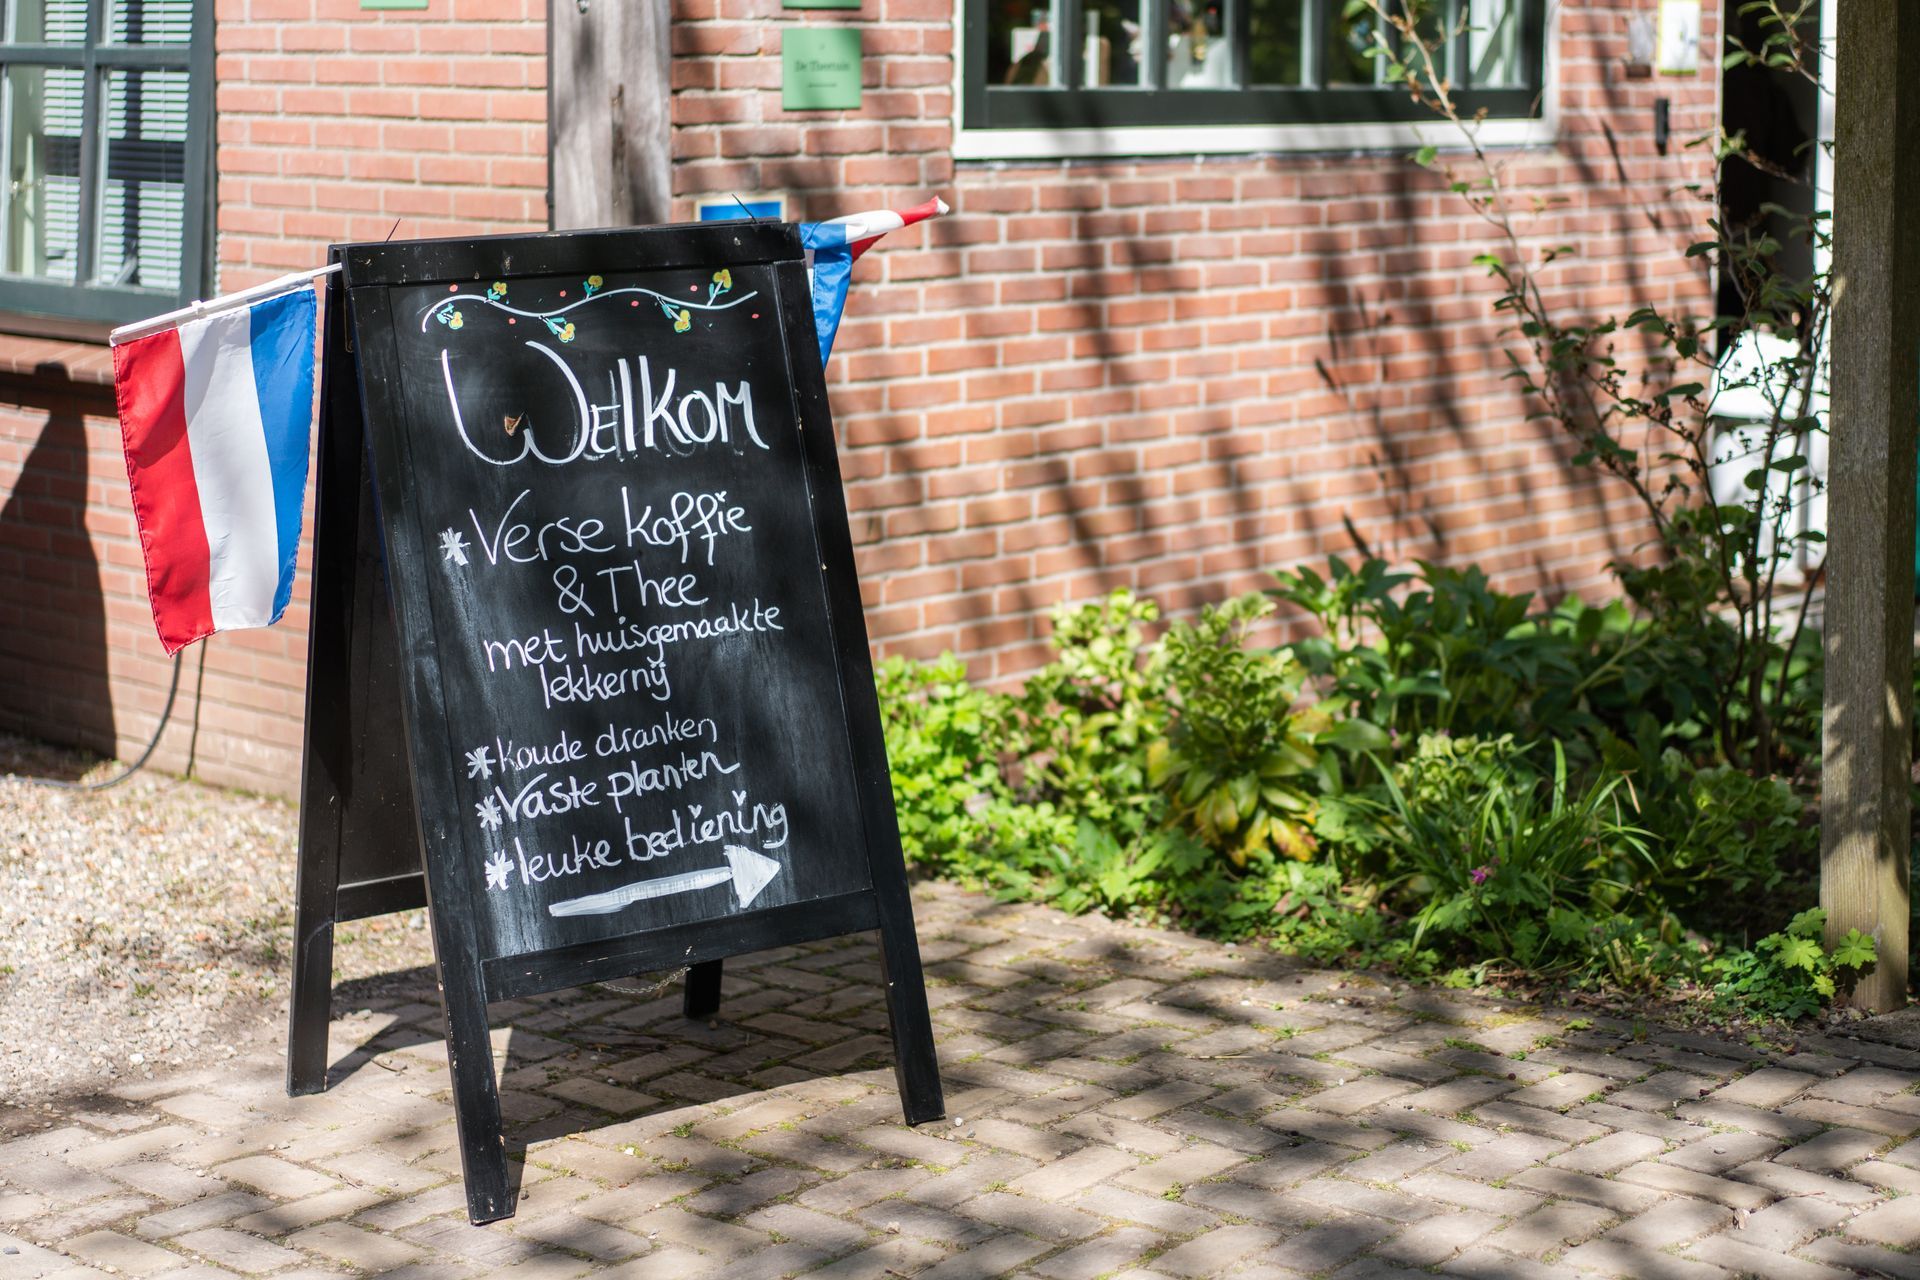 De Theetuin
Welkom
* Verse koffie
& Thee
met huisgemaakte
lekkernij
* Koude dranken
* Vaste planten
* leuke bediening